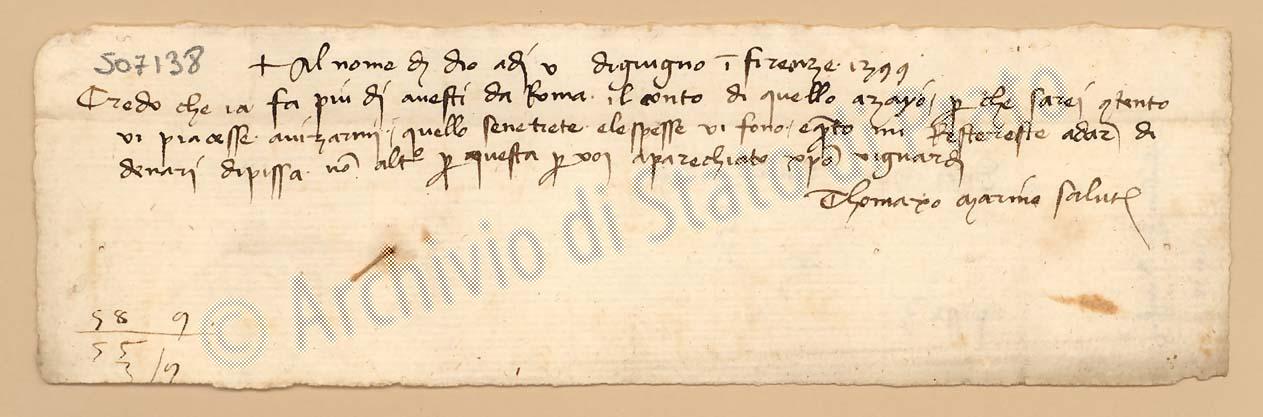 507138
+ Al nome di dio adi v di giugno ĩ firenze 1399
Credo che ia fa piu di avesti da Roma il conto di quello p che sarei 9tento
vi piacesse avizarmi quello senetrete elespesse vi fono mi Restereste adar di
denari dipissa nõ altº p questa p voi aparechiato xpõ viguardi
Thomaxo marino salut
58 9
55
3 /9
© Archivio di Stato di Prato